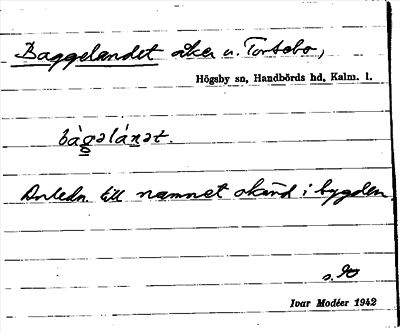 Baggelandet åker u. Tortebo,
Högsby sn, Handbörds hd, Kalm. l.
bàgəlánət.
Anledn. till namnet okänd i bygden.
s. 90
Ivar Modéer 1942